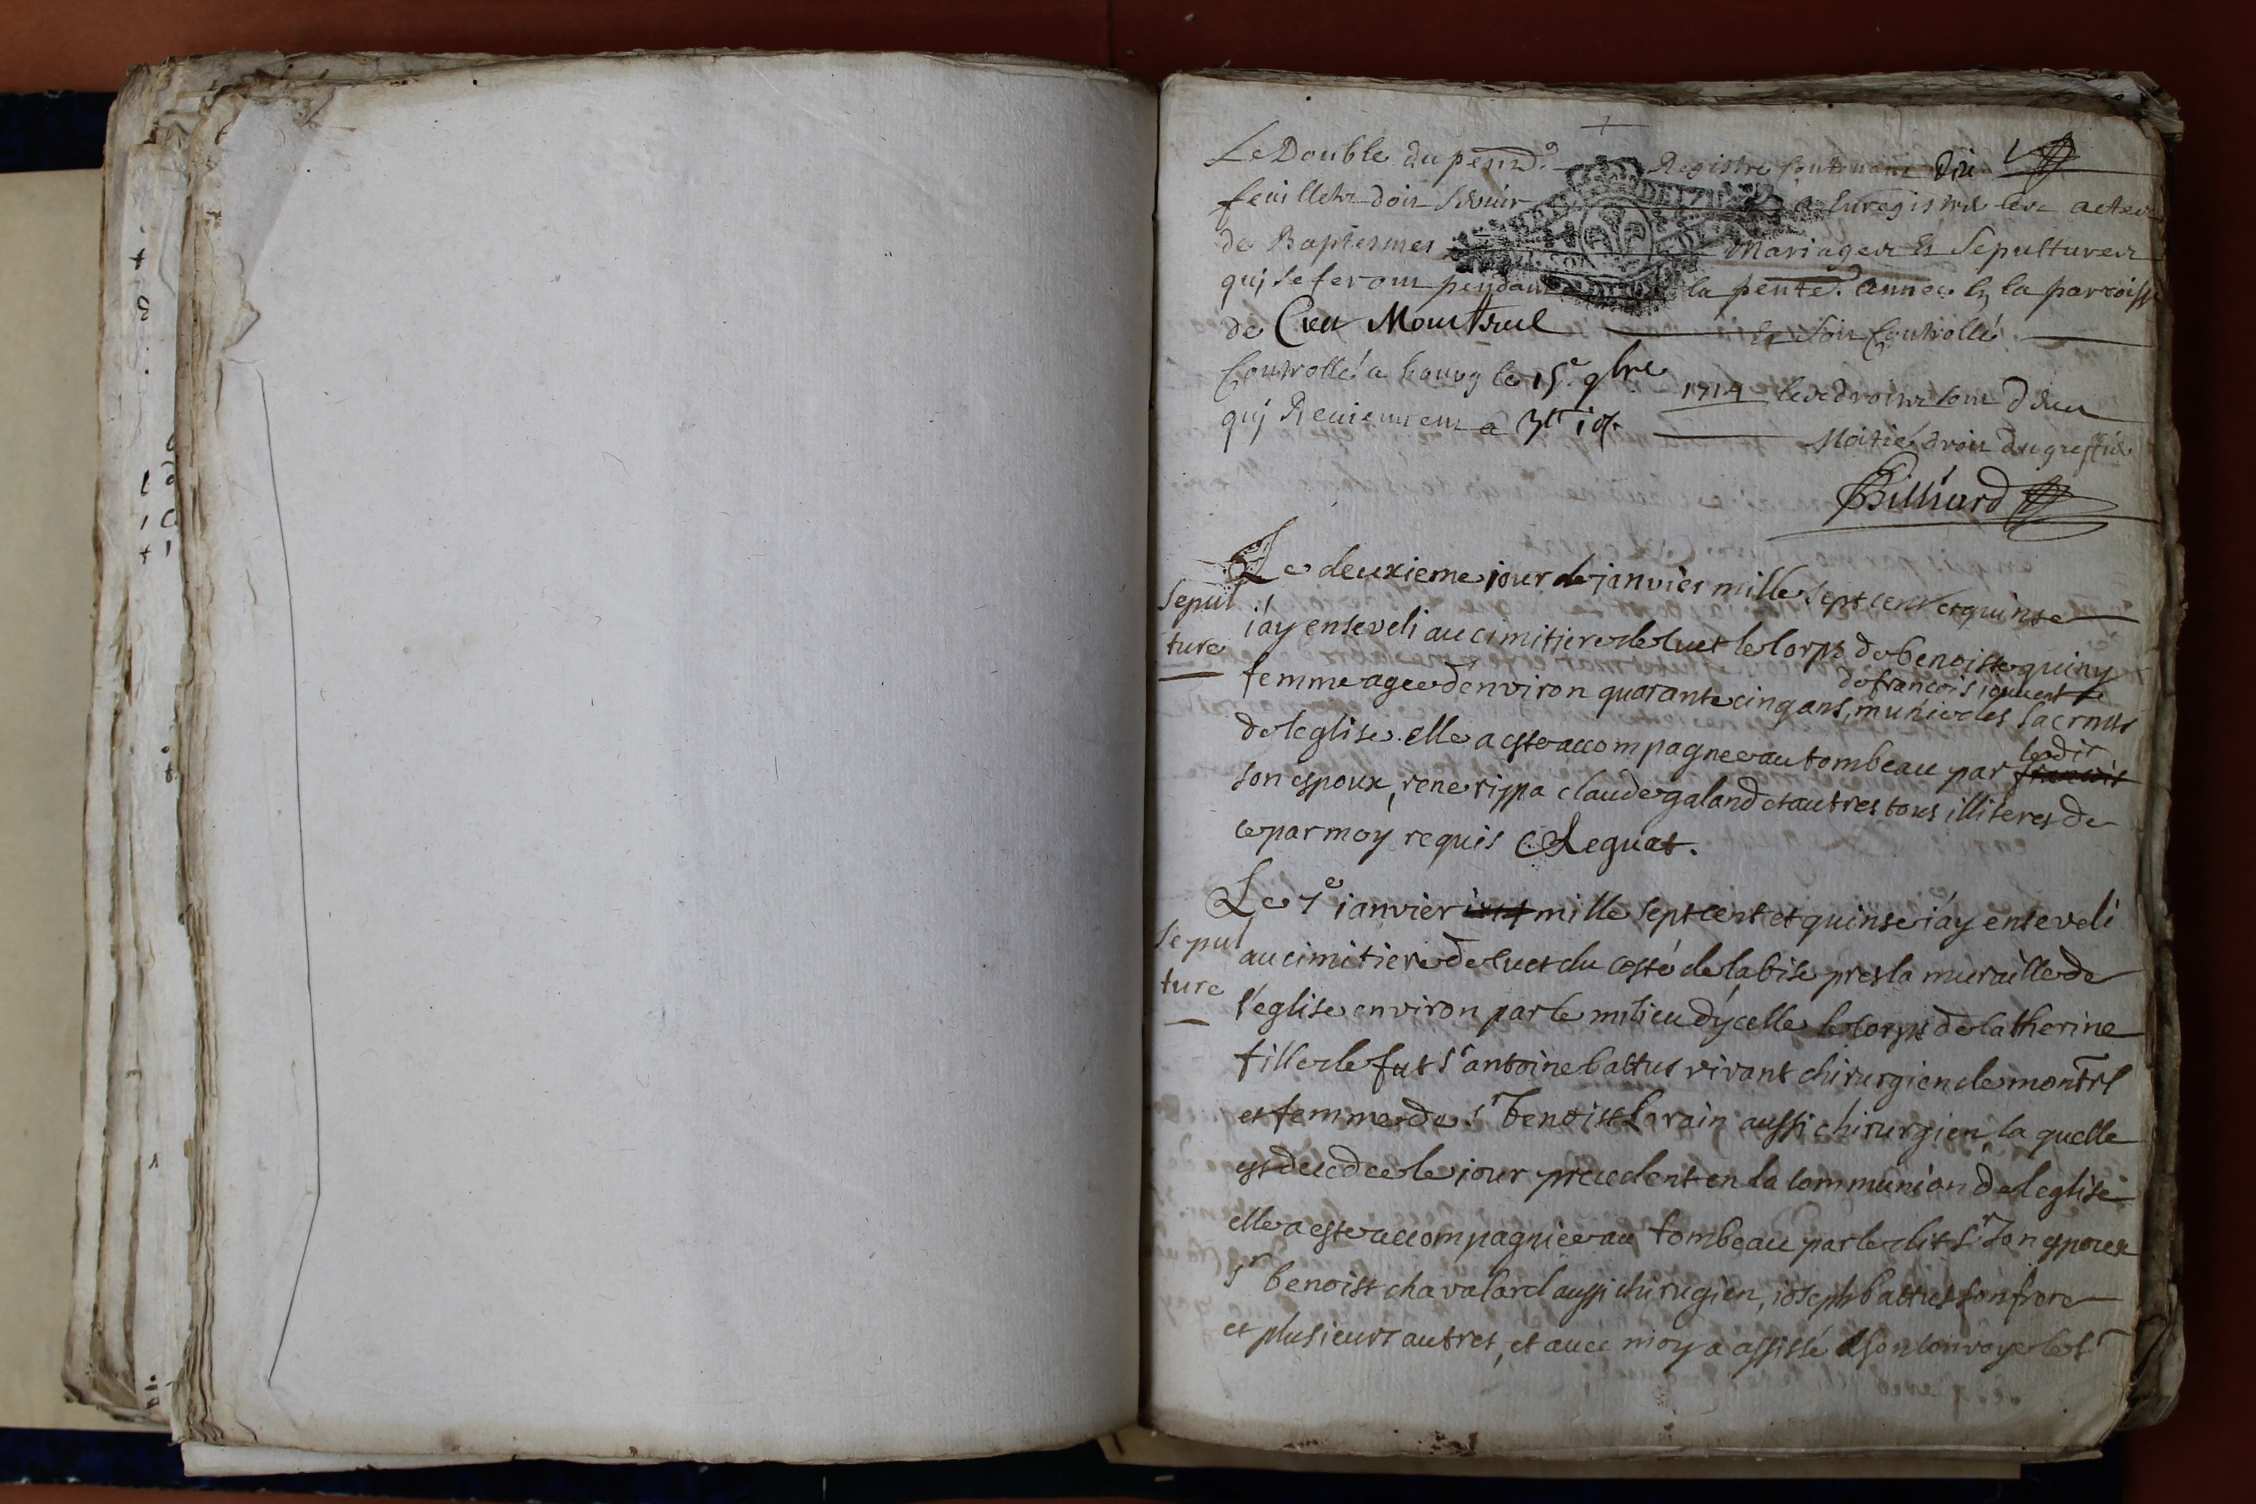 Le Double du pent. Registre Contenant dix 1
feuillets doit servir a Enregistrer les actes
de Baptesmes Mariages et Sepultures
quj se feront pendant la pente. année En la parroisse
de Cuet Montreul et soit Controllé
Controllé a bourg le 15e 9bre 1714 les droits sont deus
quj Reviennent a 3tt
Moitié droit du greffe
Billiard
Sepul
ture
Le deuxieme jour de janvier mille sept cent et quinse
j'ay enseveli au cimitiere de Cuet le corps de benoiste quiny
de francois jouvent
femme agee d'environ quarante cinq ans, munie des sacrnts
de leglise. elle a este accompagnee au tombeau par francois ledit
son espoux, rene rippa claude galand et autres tous illiteres de
ce par moy requis C Leguat.
Sepul
ture
Le 7e janvier 1714 mille sept cent et quinse j'ay enseveli
au cimitiere de Cuet du costé de la bise pres la muraille de
l'eglise environ par le milieu d'ycelle le corps de Catherine
fille de fut Sr antoine battus vivant chirurgien de montrl
et femme de Sr benoist Lorain aussi chirurgien la quelle
est decedee le jour precedent en la communion de l'eglise
elle a este accompagniee au tombeau par le dit Sr Son espoux
Sr benoist chavalard aussi chirugien, joseph battus son frere
et plusieurs autres, et avec moy a assisté a son convoye le Sr